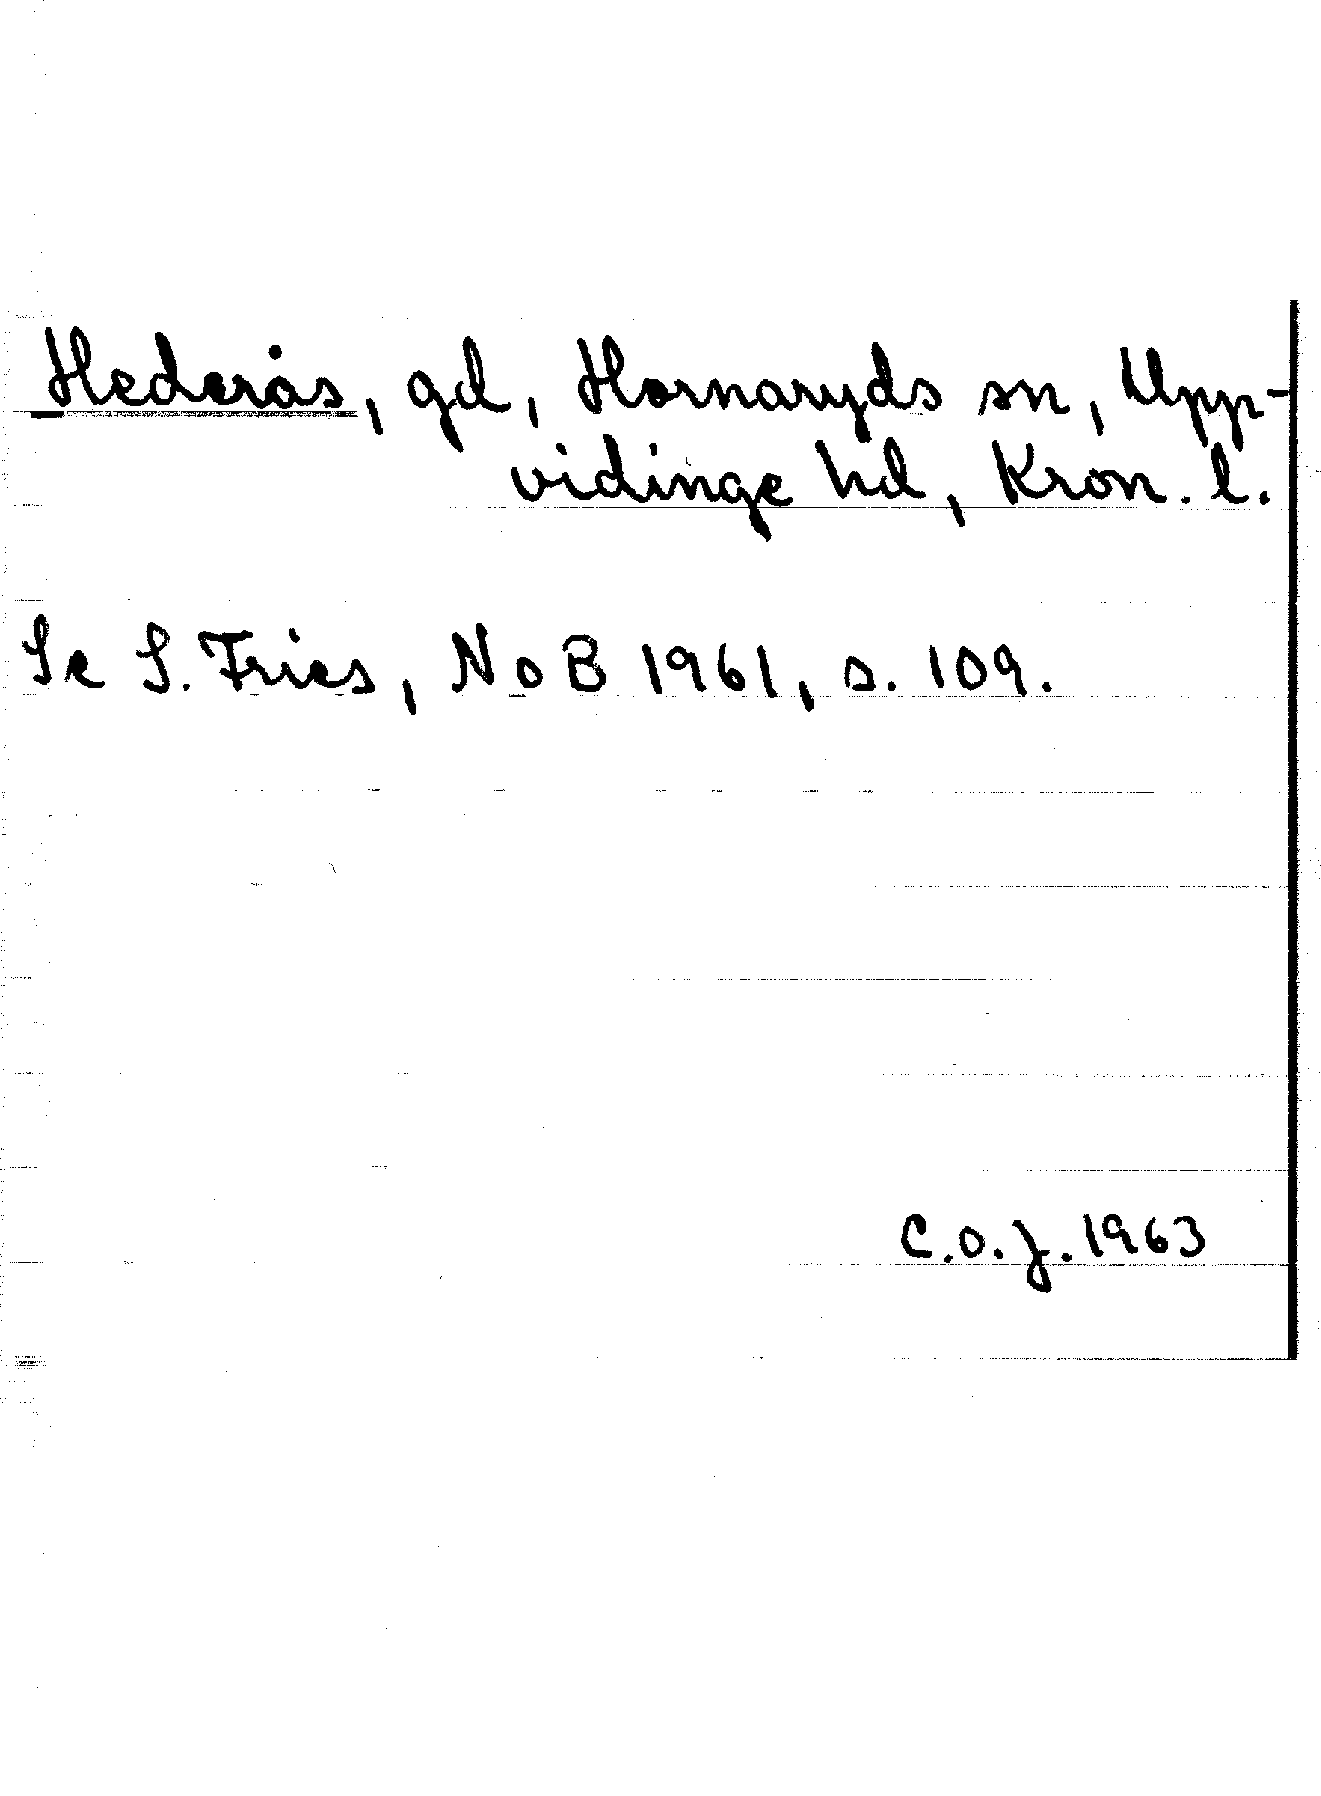 Hederås, gd, Hornaryds sn, Upp-
vidinge hd, Kron. l.
Se S. Fries, NoB 1961, s. 109.
C.O.J. 1963